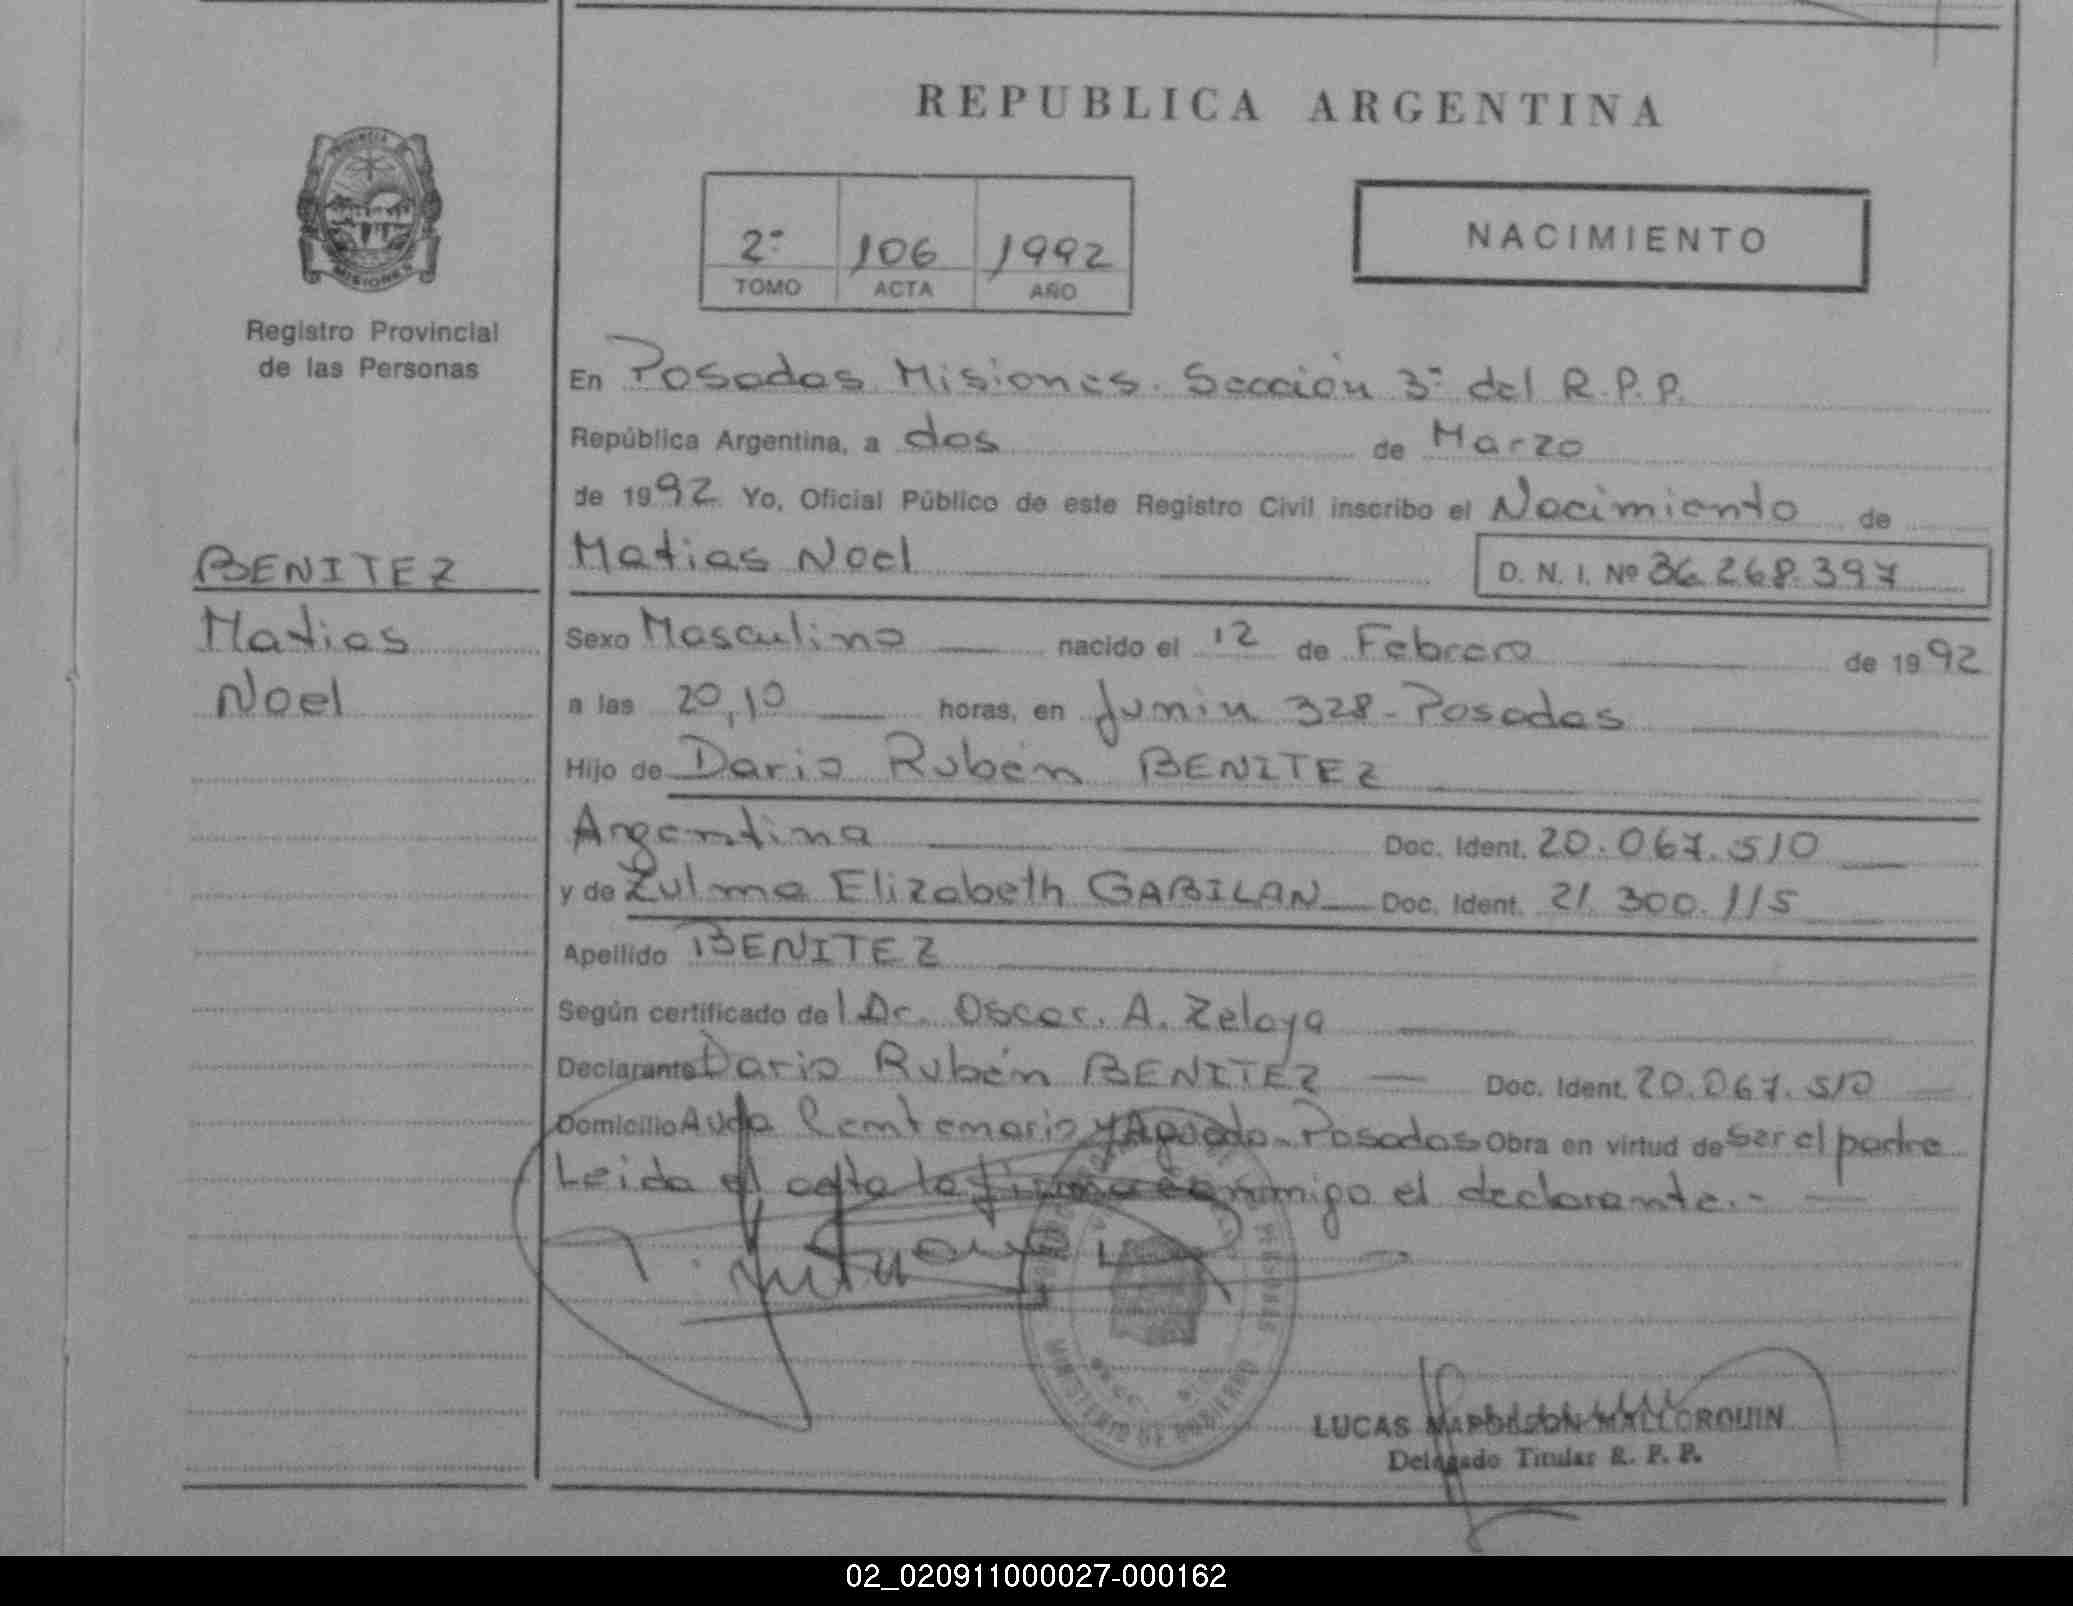 REPUBLICA ARGENTINA
PROVINCIA
MISIONES
Registro Provincial
de las Personas
2º 106 1992
TOMO ACTA AÑO
NACIMIENTO
BENITEZ
Matias
Noel
En Posadas Misiones. Sección 3º del R.P.P.
República Argentina, a dos de Marzo
de 1992 Yo, Oficial Público de este Registro Civil inscribo el Nacimiento de
Matias Noel D. N. I. Nº 36.268.397
Sexo Masculino nacido el 12 de Febrero de 1992
a las 20,10 horas, en Junin 328 - Posadas
Hijo de Dario Rubén BENITEZ
Argentina Doc. Ident. 20.067.510
y de Zulma Elizabeth GABILAN Doc. Ident. 21.300.115
Apellido BENITEZ
Según certificado del Dr. Oscar. A. Zelaya
Declarante Dario Rubén BENITEZ Doc. Ident. 20.067.510
Domicilio Avda Centenario y Aguado - Posadas Obra en virtud de ser el padre
Leida el acta la firma conmigo el declarante.-
MINISTERIO DE GOBIERNO
LUCAS NAPOLEON MALLORQUIN
Delegado Titular R. P. P.
02_020911000027-000162